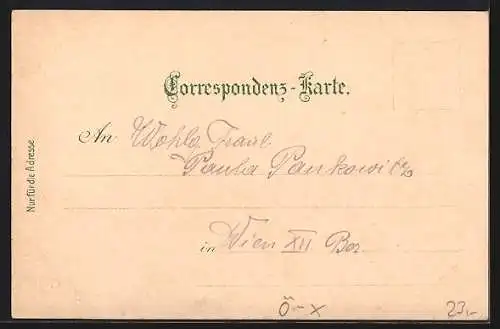 Correspondenz-Karte.
An Wohlg Fraul
Paula Pankowitz
in Wien XII Bez.
Nur für die Adresse
Ö-X
23,-